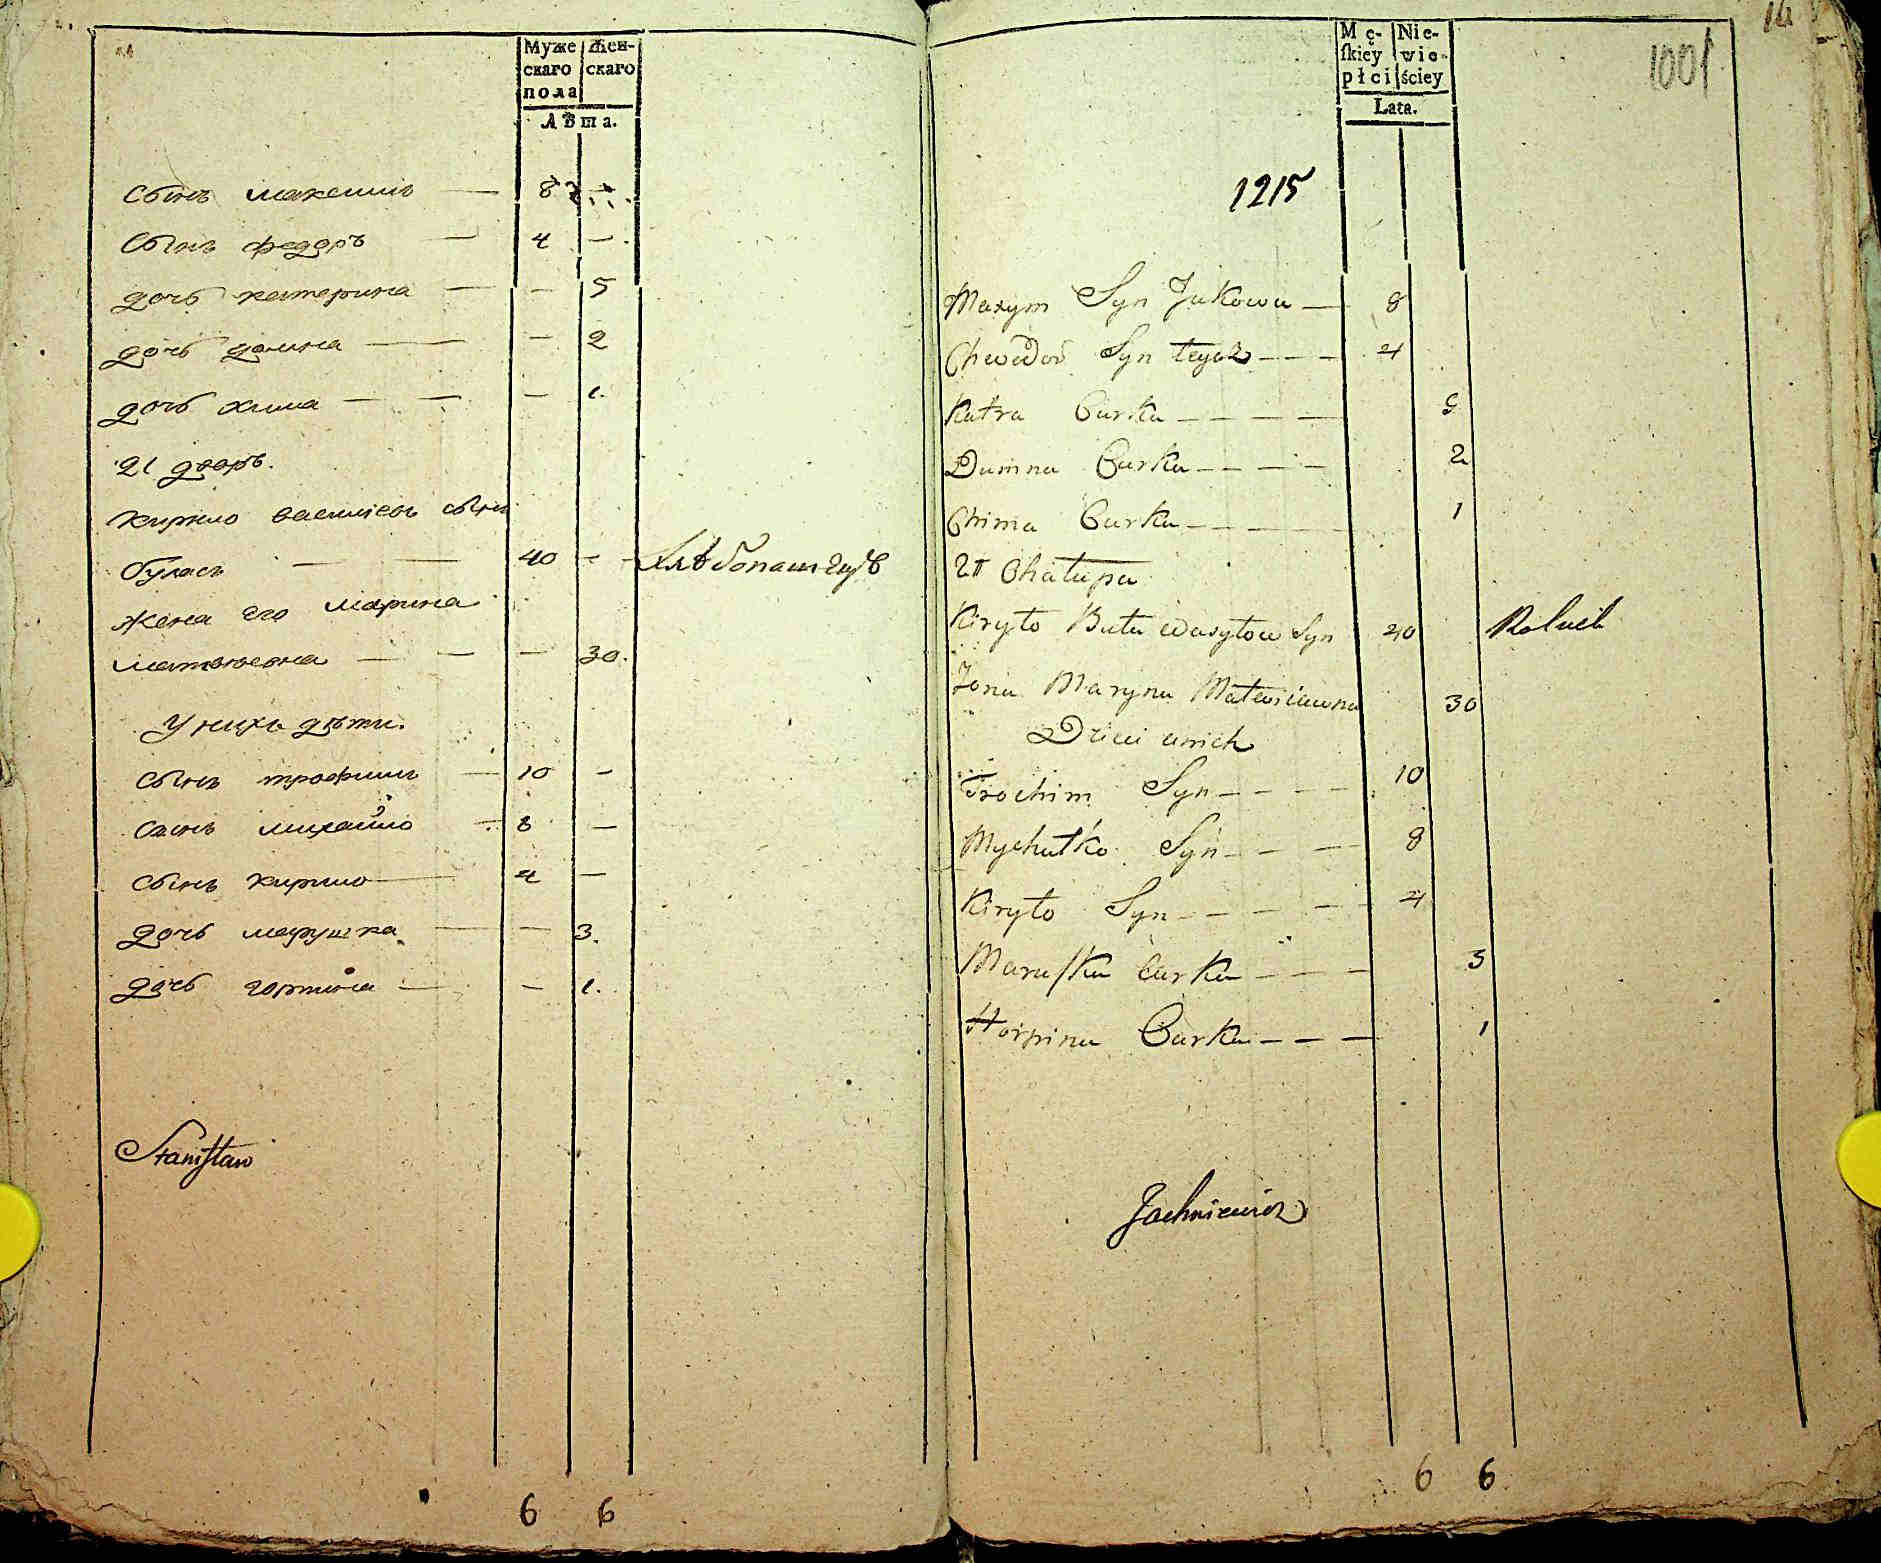 Муже Жен-
скаго скаго
пола
Лѣта.
сынъ максимъ — 8
сынъ федоръ — 4 —
дочь катерина — — 5
дочь домна — — 2
дочь хима — — — 1.
21 дворъ.
кирило василіевъ сынъ
буласъ — — 40 - - хлѣбопашецъ
жена его марина
матвѣевна — — — 30.
у нихъ дѣти.
сынъ трофимъ — 10 -
сынъ михайло — 8 —
сынъ кирило — 4 —
дочь марушка — — 3.
дочь горпина — — 1.
Staniſław
6 6
16
1001
Mę- Nie-
ſkiey wie-
płci ściey
Lata.
1215
Maxym Syn Jakowa — 8
Chwedor Syn tegoż — — — 4
Katra Curka — — — — 5
Dumna Curka — — — — 2
Chima Curka — — — 1
21 Chałupa
Kiryło Buła Wasylow Syn 40 Rolnik
Żona Maryna Matwiiewna 30
Dzieci unich
Trochim Syn — — — — 10
Mychałko Syn — — — 8
Kiryło Syn — — — — 4
Maruſka Curka — — — 3
Horpina Curka — — — 1
Jachniewicz
6 6